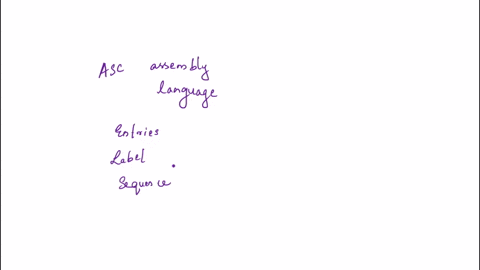 ASC assembly
language
Entries
Label
Sequence